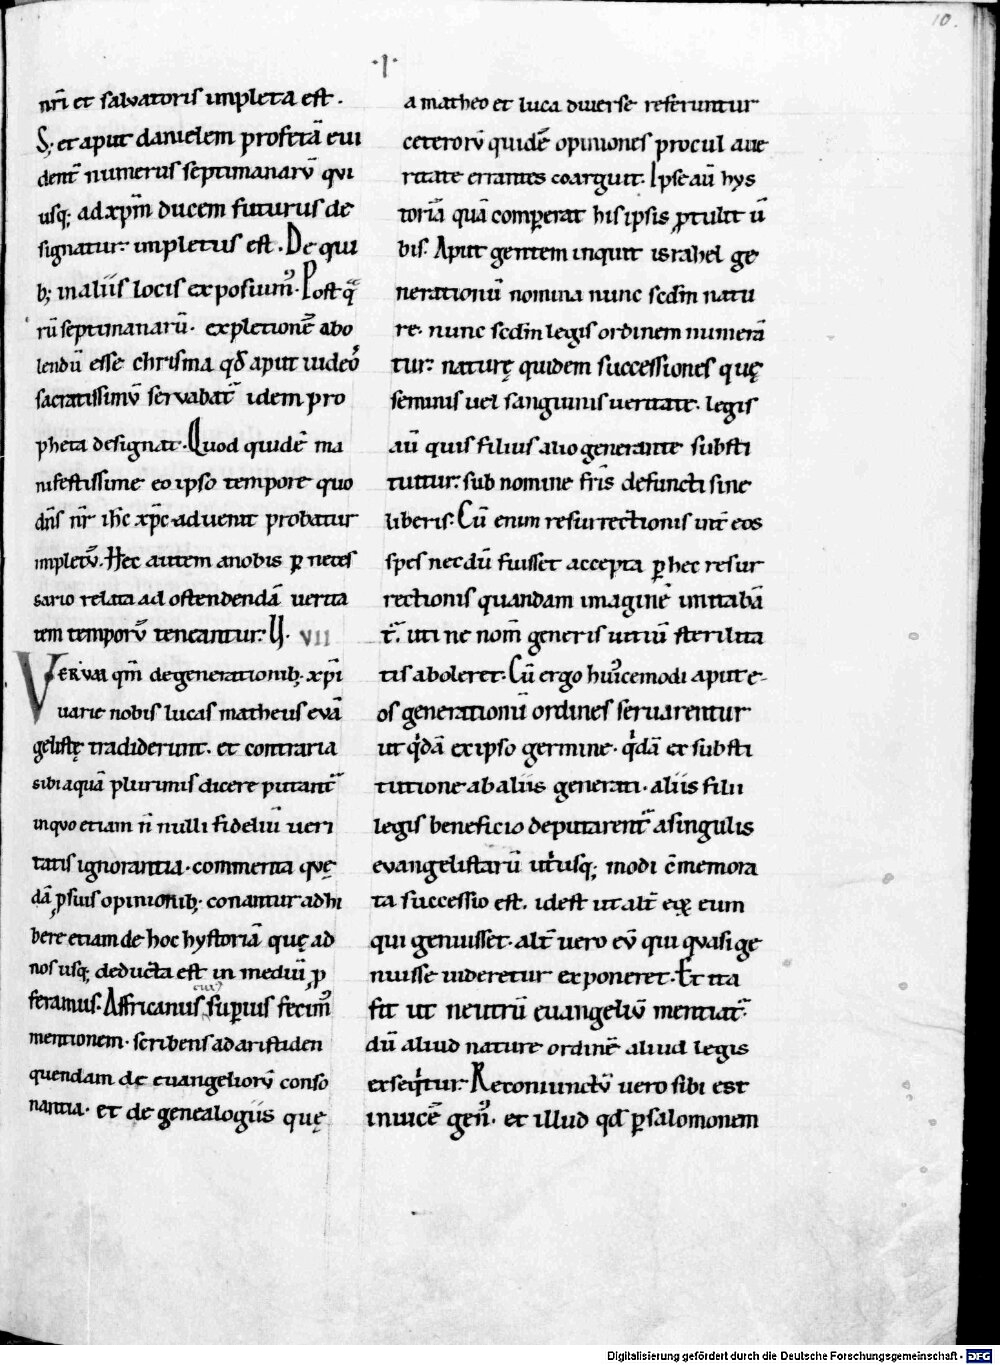 10.
·I·
nr̄i et salvatoris impleta est .
S; et aput danielem profetā evi
dent̄ numerus septimanarū qui
usq; ad xp̄m ducem futurus de
signatur· impletus est . De qui
b; in aliis locis exposuim᾽· Post q̄
rū septimanarū· expletionē abo
lendū esse chrisma qd̄ aput iudeo᾽
sacratissimū servabat̄ idem pro
pheta designat· Quod quidē ma
nifestissime eo ipso tempore quo
dn̄s nr̄ ih̄c xp̄c advenit probatur
impletū· Hec autem a nobis ꝑ neces
sario relata ad ostendendā verita
tem temporū teneantur· VII
VERUM qm̄ de generationib; xp̄i
varie nobis lucas matheus evā
gelistę tradiderunt· et contraria
sibi aquā plurimis dicere putant̄
in quo etiam n̄ nulli fideliū veri
tatis ignorantia· commenta quę
dā ꝓsuis opinionib; conantur adhi
bere etiam de hoc hystoriā quę ad
nos usq; deducta est in mediū ꝓ
feramus· Affricanus cui᾽ suꝑius fecim᾽
mentionem· scribens ad aristiden
quendam de evangeliorū conso
nantia· et de genealogiis quę
a matheo et luca diverse referuntur
ceterorū quidē opiniones procul a ve
ritate errantes coarguit· Ipse aū hys
toriā quā comperat his ipsis ꝓtulit ū
bis· Aput gentem inquit israhel ge
nerationū nomina nunc scd̄m natu
re· nunc scd̄m legis ordinem numerā
tur· naturę quidem successiones quę
seminis vel sanguinis veritate· legis
aū quis filius alio generante substi
tuitur· sub nomine fr̄is defuncti sine
liberis· Cū enim resurrectionis int̄ eos
spes necdū fuisset accepta ꝑ hec resur
rectionis quandam imaginē imitabā
t̄· uti ne nom̄ generis vitiū sterilita
tis aboleret· Cū ergo hui᾽cemodi aput e-
os generationū ordines servarentur
ut qͥdā ex ipso germine· qͥdā ex substi
tutione ab aliis generati· aliis filii
legis beneficio deputarent̄ a singulis
evangelistarū ut̄usq; modi c̄memora
ta successio est· id est ut alt̄ eqꝫ eum
qui genuisset· alt̄ vero eū qui quasi ge
nuisse videretur exponeret· Et ita
fit ut neutrū evangeliū mentiat̄·
dū aliud nature ordinē aliud legis
exseqͥtur· Reconiunctū vero sibi est
invicē gen᾽· et illud qd̄ ꝑ salomonem
Digitalisierung gefördert durch die Deutsche Forschungsgemeinschaft - DFG